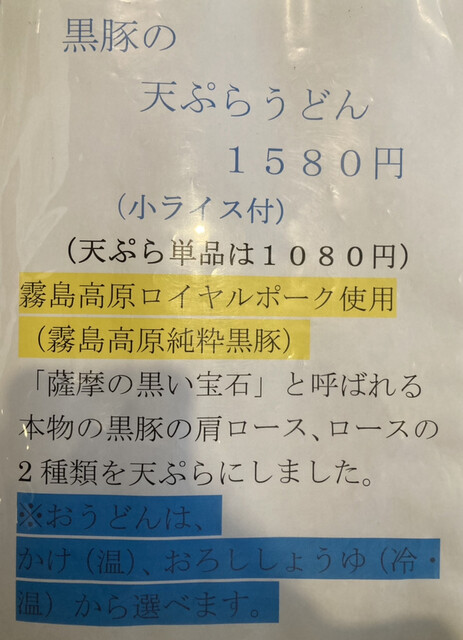 黒豚の
天ぷらうどん
１５８０円
（小ライス付）
（天ぷら単品は１０８０円）
霧島高原ロイヤルポーク使用
（霧島高原純粋黒豚）
「薩摩の黒い宝石」と呼ばれる
本物の黒豚の肩ロース、ロースの
２種類を天ぷらにしました。
※おうどんは、
かけ（温）、おろししょうゆ（冷・
温）から選べます。